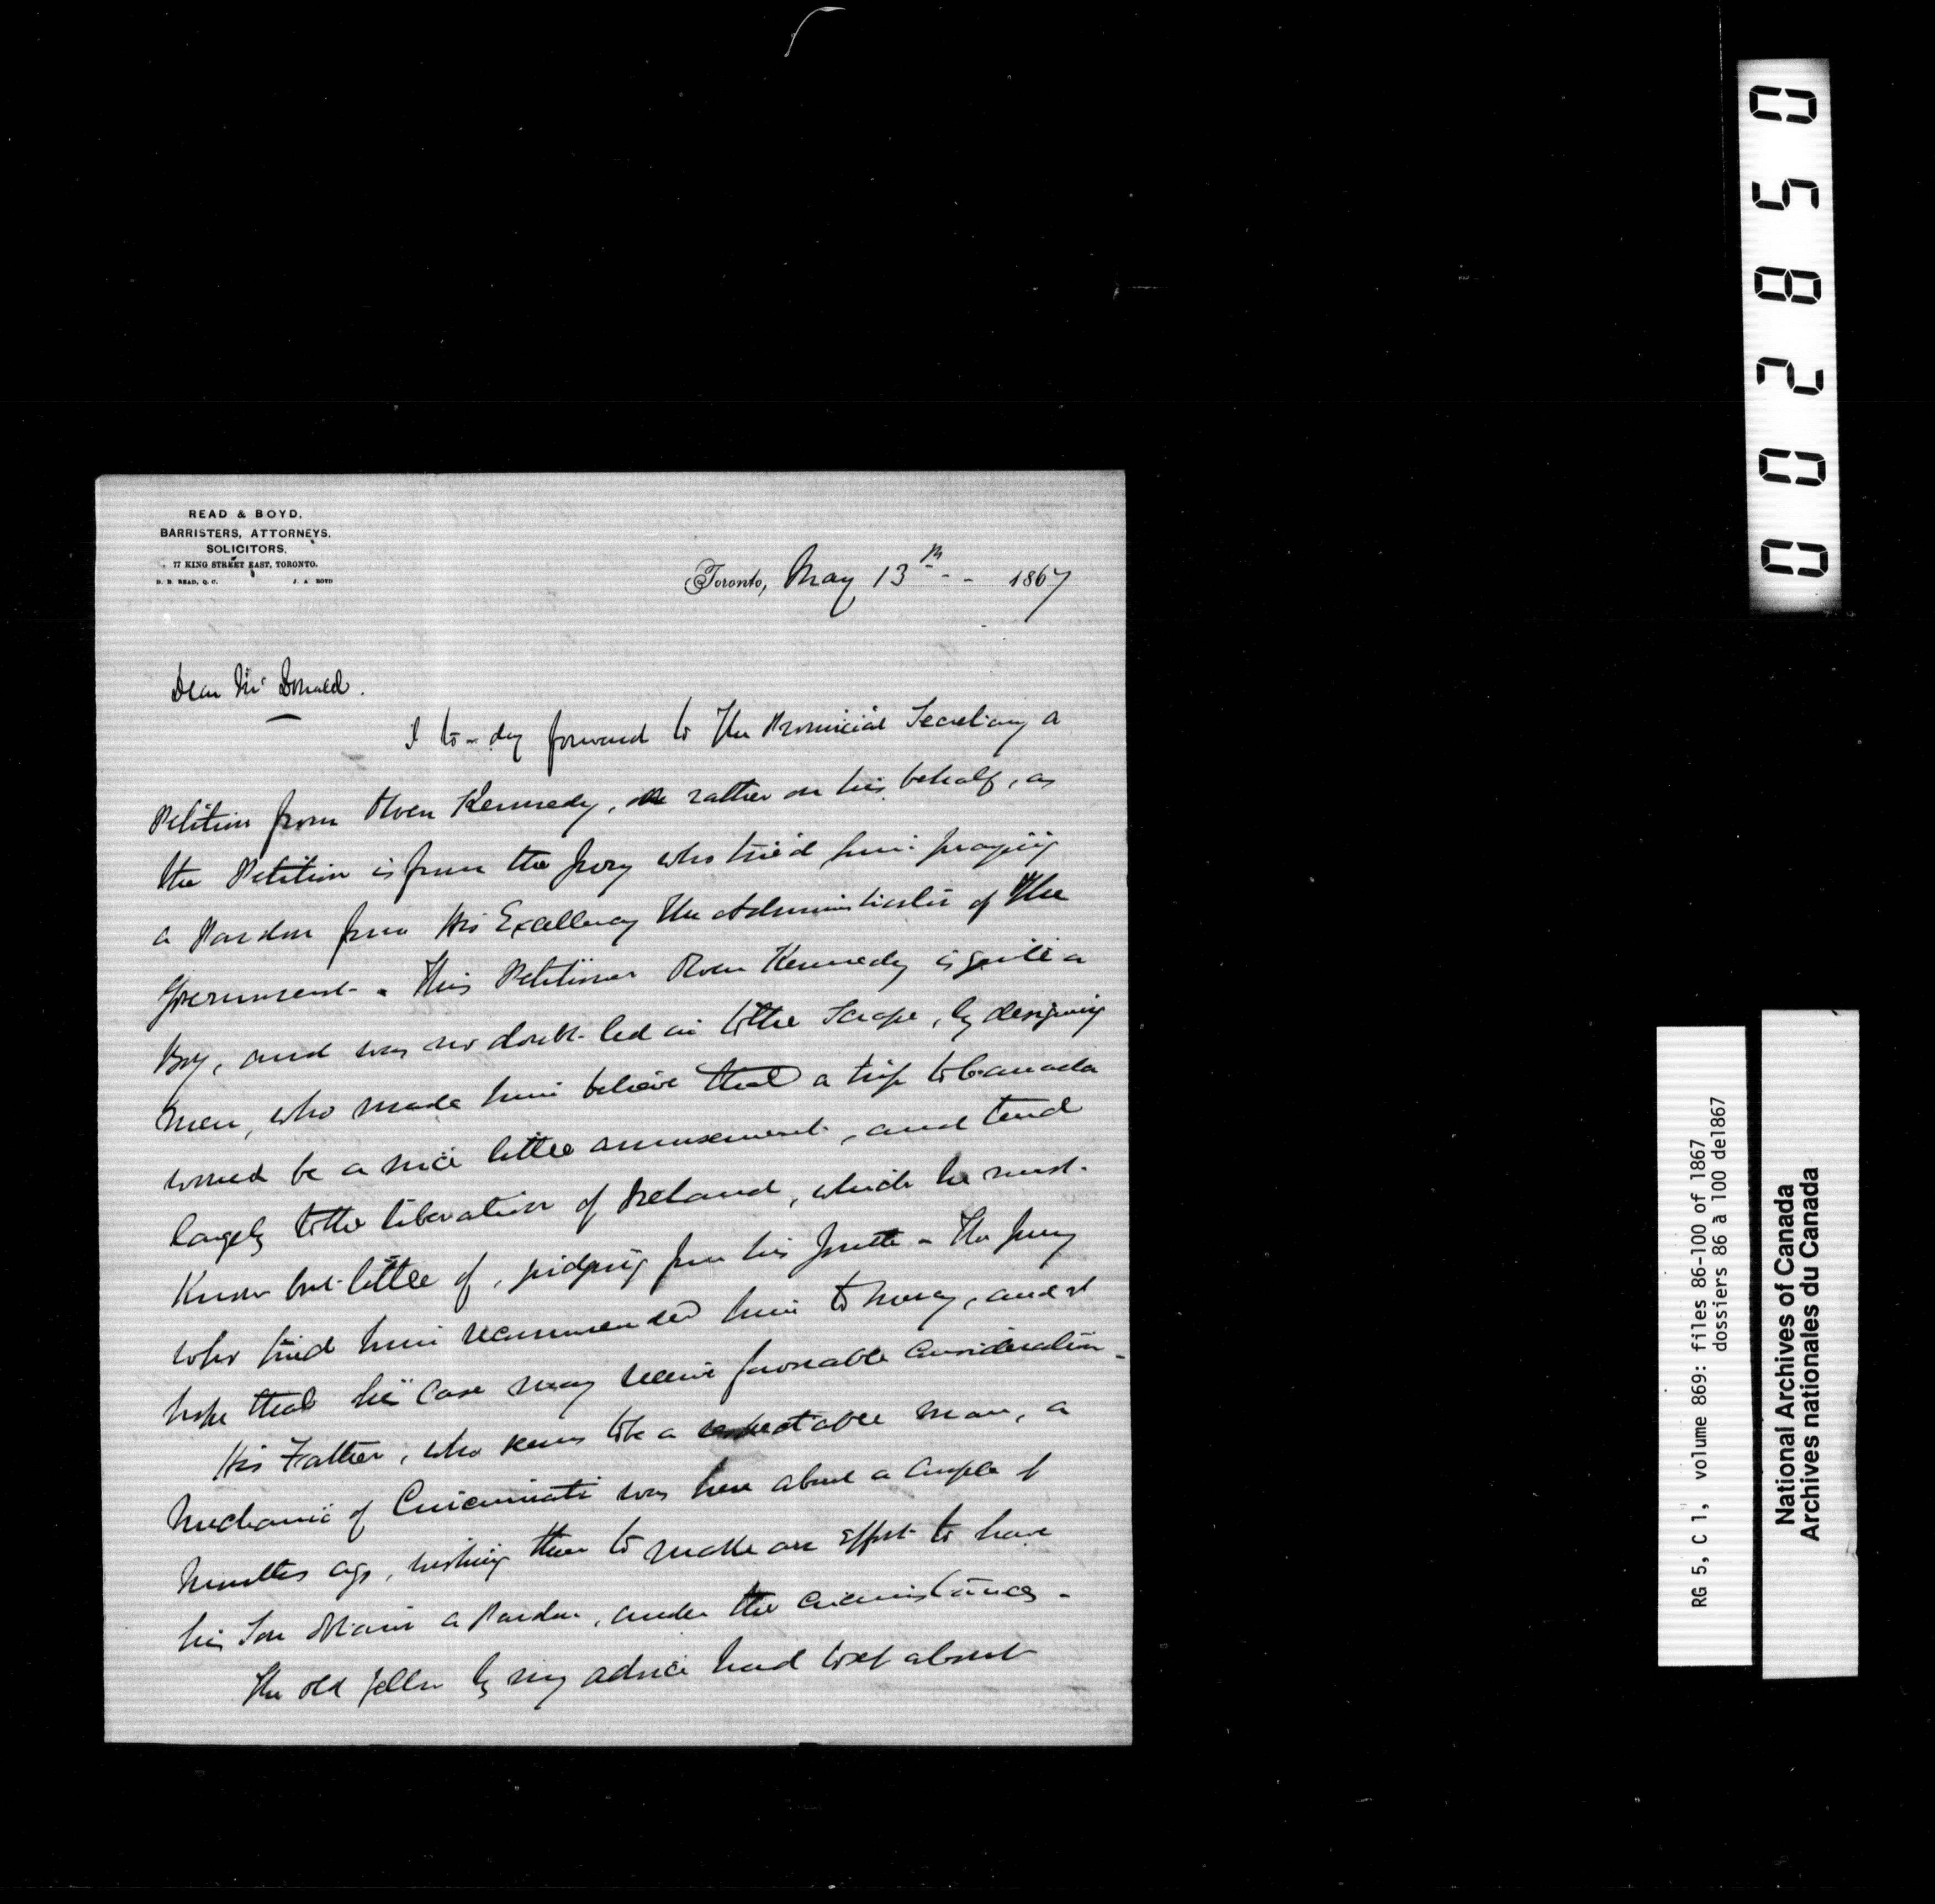 READ & BOYD,
BARRISTERS, ATTORNEYS,
SOLICITORS,
77 KING STREET EAST, TORONTO.
D. B. READ, Q. C. J. A. BOYD
Toronto, May 13th 1867
Dear Mr Donald.
I to-day forward to The Provincial Secretary a
Petition from Owen Kennedy, or rather on his behalf, as
the Petition is from the Jury who tried him praying
a Pardon from His Excellency The Administrator of The
Government. This Petitioner Owen Kennedy is quite a
Boy, and was no doubt led in to the Scrape, by designing
men, who made him believe that a trip to Canada
would be a nice little amusement, and tend
largely to the liberation of Ireland, which he must
know but little of, judging from his youth - The Jury
who tried him recommended him to mercy, and I
hope that his case may receive favorable consideration -
His Father, who seems to be a respectable man, a
mechanic of Cincinnati was here about a couple of
months ago, wishing then to make an effort to have
his Son obtain a Pardon, under the circumstances -
The old fellow by my advice had to set about
00285 0
RG 5, C 1, volume 869: files 86-100 of 1867
dossiers 86 à 100 de1867
National Archives of Canada
Archives nationales du Canada